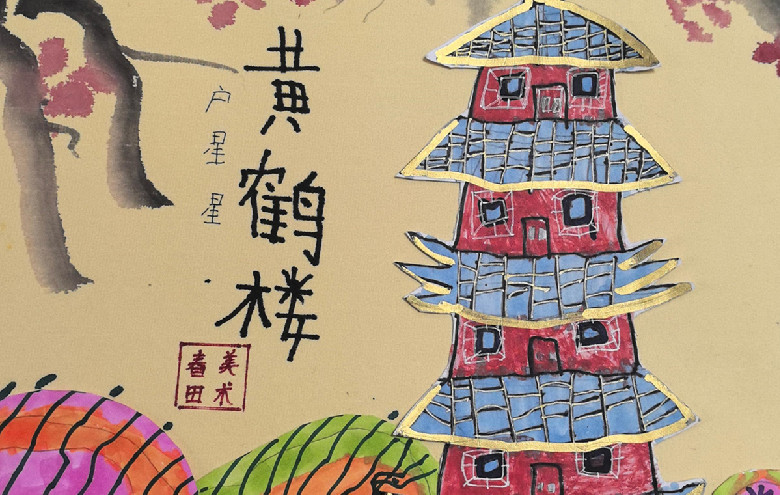 黄鹤楼
户星星
美术
春田